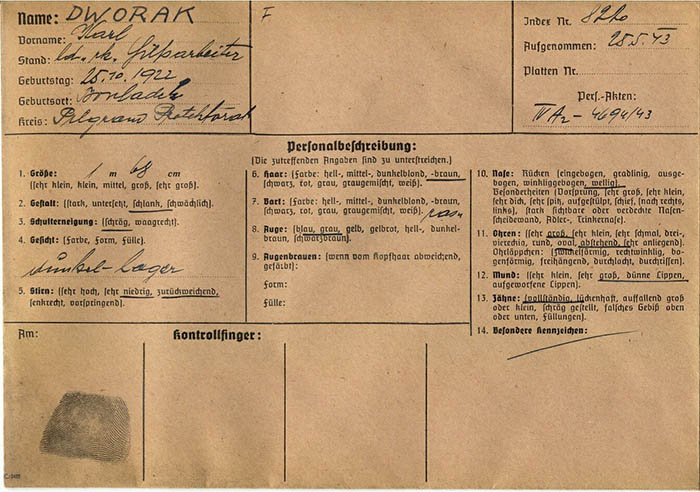 Name: DWORAK
Vorname: Karl
Stand: led. rk. Hilfsarbeiter
Geburtstag: 25.10.1922
Geburtsort:
Kreis: Pilgrams Protektorat
F
Index Nr.
Aufgenommen: 25.5.43
Platten Nr.
Pers.-Akten:
IV A2 - 4694/43
Personalbeschreibung:
(Die zutreffenden Angaben sind zu unterstreichen.)
1. Größe: 1 m 68 cm
(sehr klein, klein, mittel, groß, sehr groß).
2. Gestalt: (stark, untersetzt, schlank, schwächlich).
3. Schulterneigung: (schräg, waagrecht).
4. Gesicht: (Farbe, Form, Fülle).
dunkel-
5. Stirn: (sehr hoch, sehr niedrig, zurückweichend,
senkrecht, vorspringend).
6. Haar: (Farbe: hell-, mittel-, dunkelblond, -braun,
schwarz, rot, grau, graugemischt, weiß).
7. Bart: (Farbe: hell-, mittel-, dunkelblond, -braun,
schwarz, rot, grau, graugemischt, weiß). ras.
8. Auge: (blau, grau, gelb, gelbrot, hell-, dunkel-
braun, schwarzbraun).
9. Augenbrauen: (wenn vom Kopfhaar abweichend,
gefärbt):
Form:
Fülle:
10. Nase: Rücken (eingebogen, gradlinig, ausge-
bogen, winkliggebogen, wellig).
Besonderheiten (Vorsprung, sehr groß, sehr klein,
sehr dick, sehr spitz, aufgestülpt, schief, nach rechts,
links), stark sichtbare oder verdeckte Nasen-
scheidewand, Adler-, Trinkernase).
11. Ohren: (sehr groß, sehr klein, sehr schmal, drei-,
viereckig, rund, oval, abstehend, sehr anliegend).
Ohrläppchen: (zwickelförmig, rechtwinklig, bo-
genförmig, freihängend, durchlocht, durchrissen).
12. Mund: (sehr klein, sehr groß, dünne Lippen,
aufgeworfene Lippen).
13. Zähne: (vollständig, lückenhaft, auffallend groß
oder klein, schräg gestellt, falsches Gebiß oben
oder unten, Füllungen).
14. Besondere Kennzeichen:
Am:
Kontrollfinger: